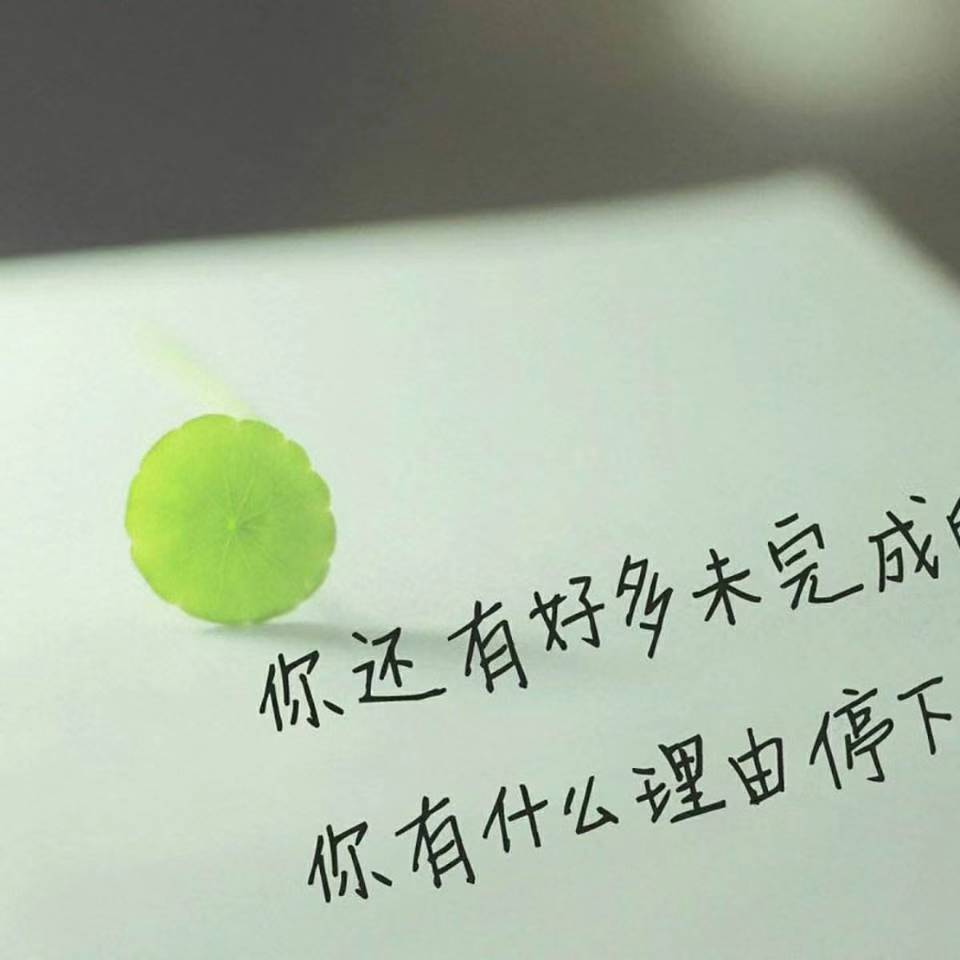 你还有好多未完成
你有什么理由停下